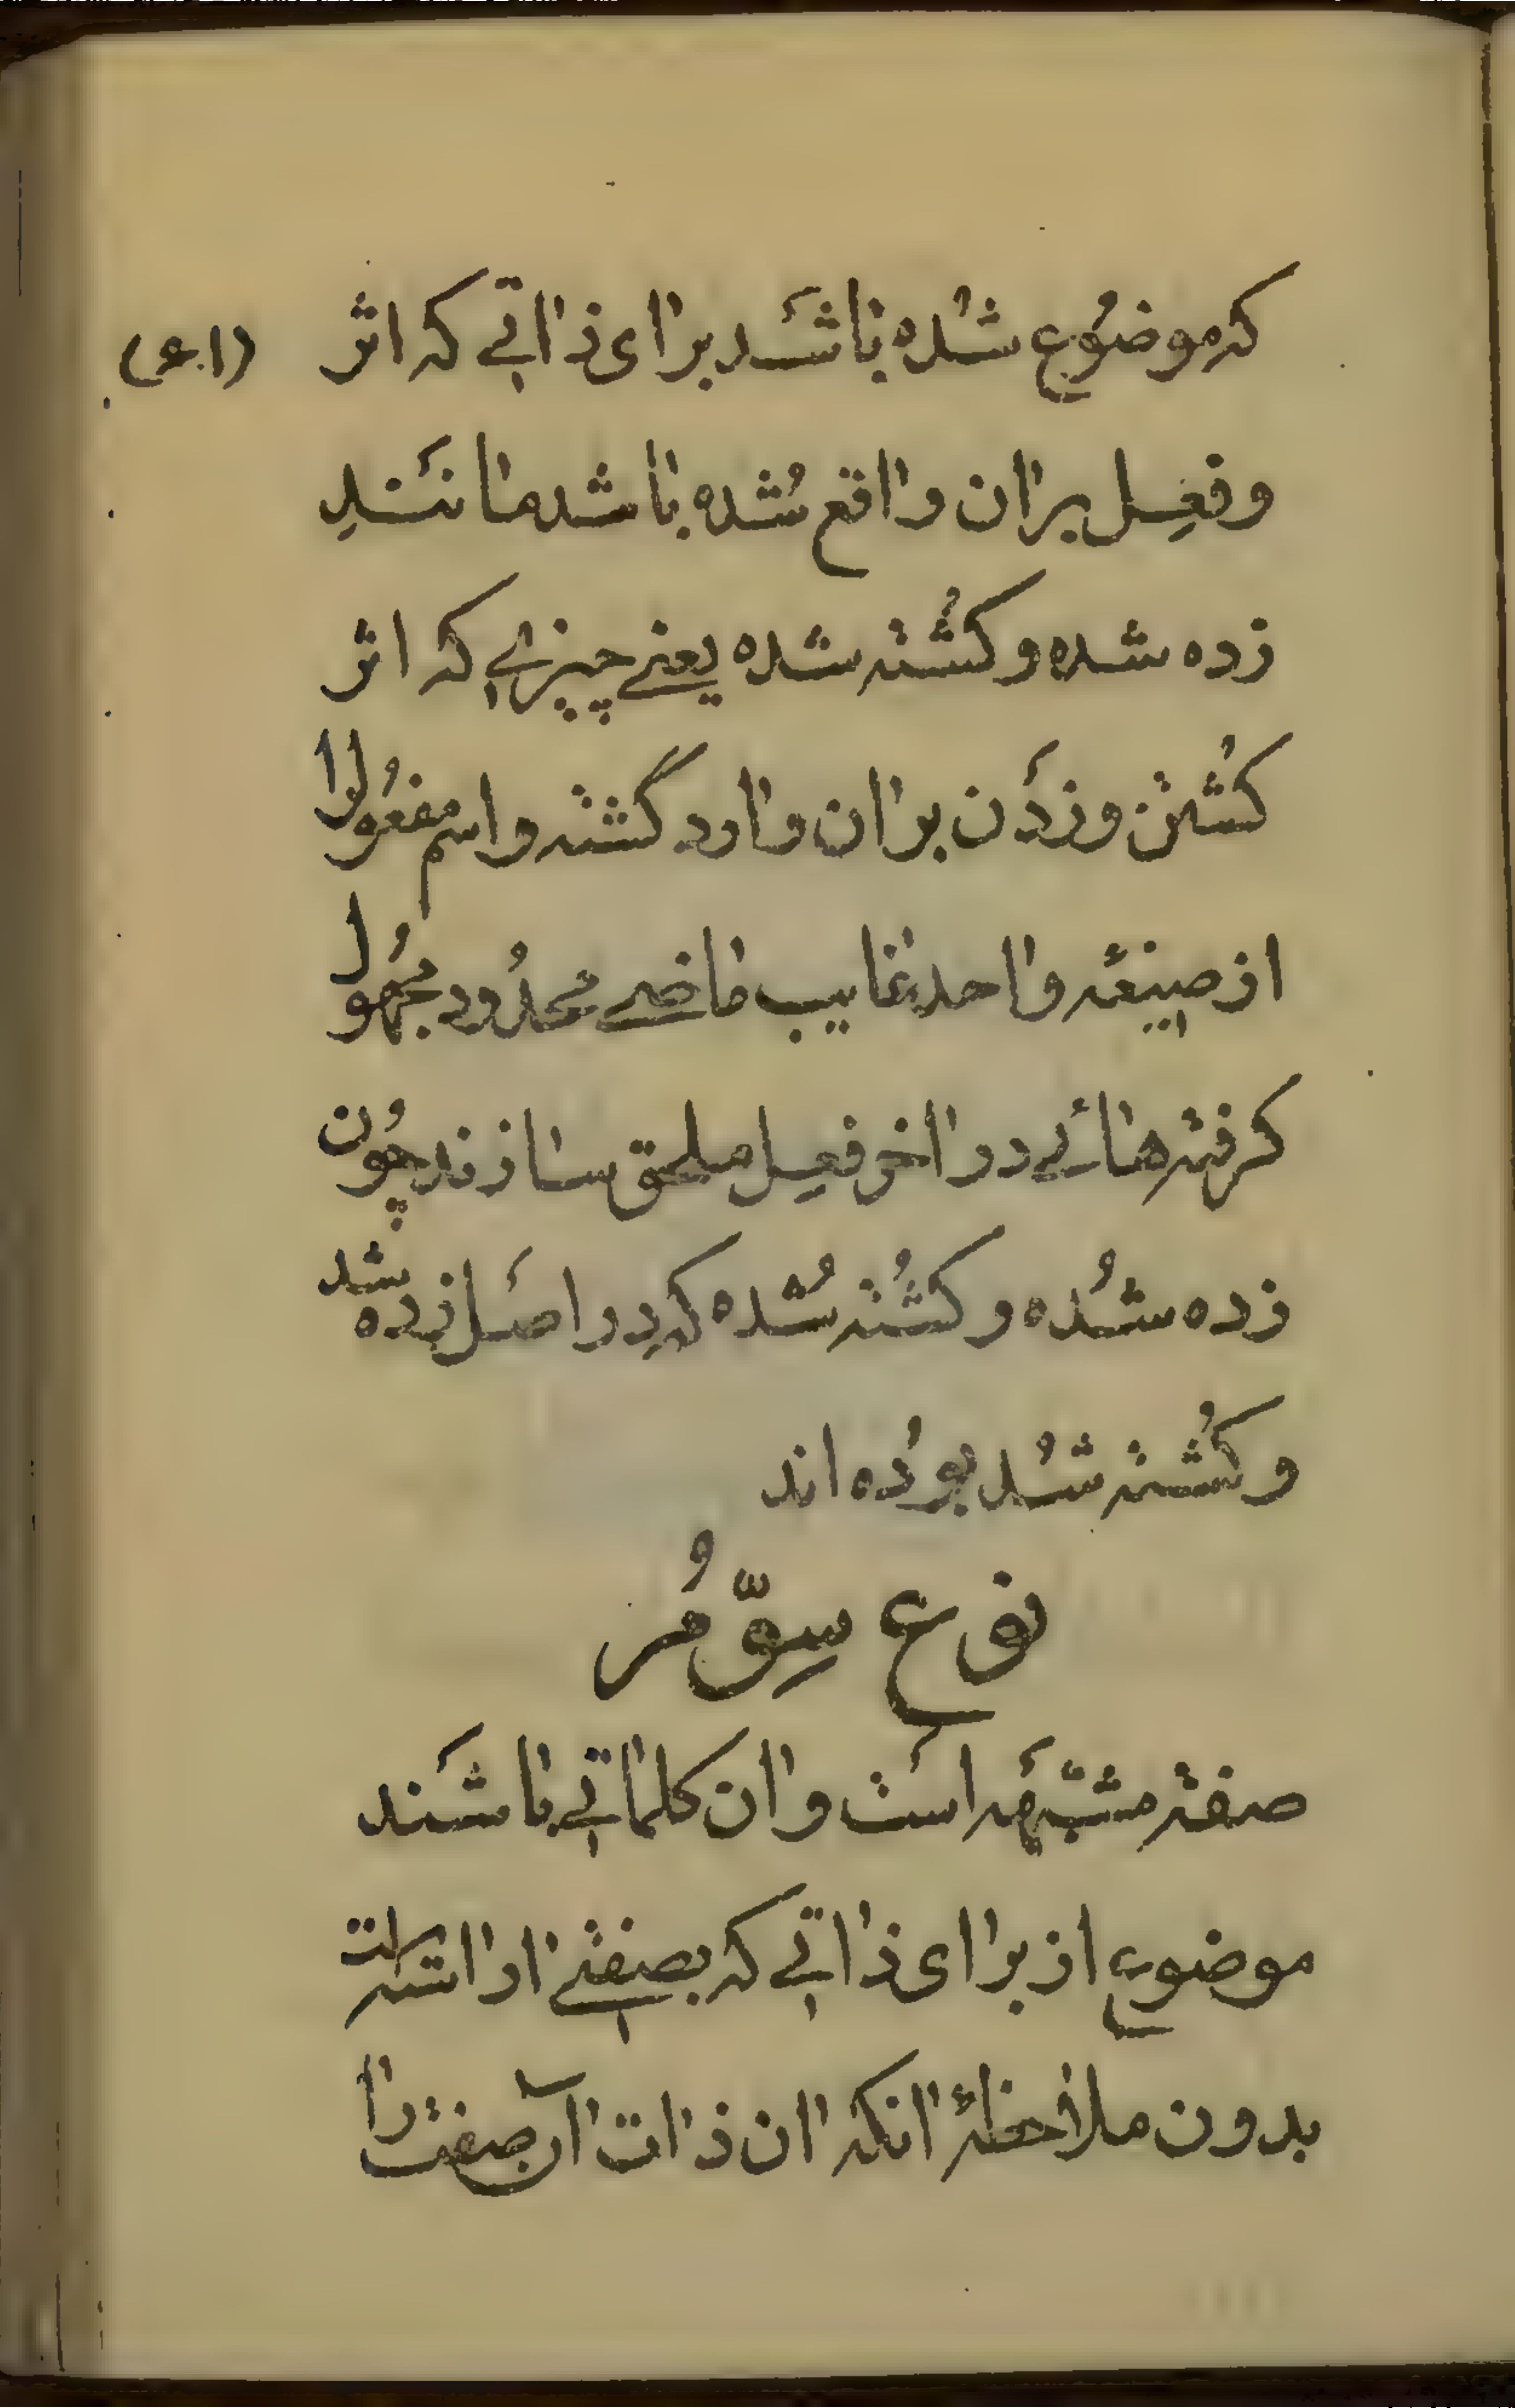 که موضُوع شُده باشَد برای ذاتے که اثر
وفعِل بران واقع شُده باشد مانَندِ
زده شده وکُشته شده یعنے چیزے که اثر
کُشتن وزدَن بران وارد گشته واسم مفعُول را
از صیغهٔ واحد غایب ماضے محدُود مجهُول
گرفته هائے در اخر فعِل ملحق سازند چُون
زده شُده وکُشته شُده که در اصَل زده شد
وکُشته شُد بوُده اند
نوع سِوّمُ
صفة مشبّهَه است وان کلماتے باشَند
موضوع از برای ذاتے که بصفتے اراسته است
بدون ملاحظهٔ انکه ان ذات آن صفت را